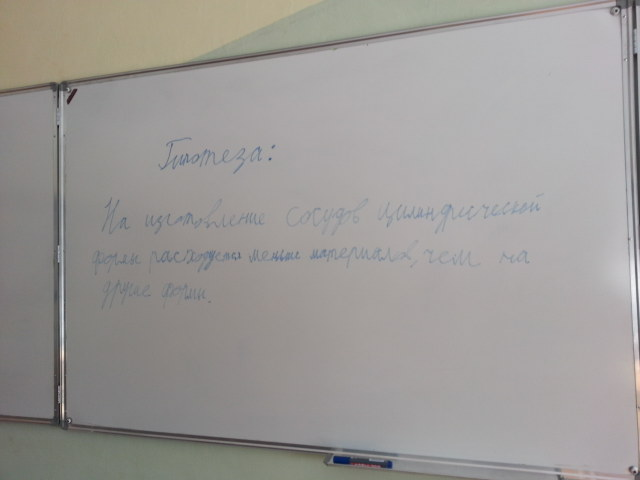 Гипотеза:
На изготовление сосудов цилиндрической
форм расходуется меньше материалов, чем на
другие формы.